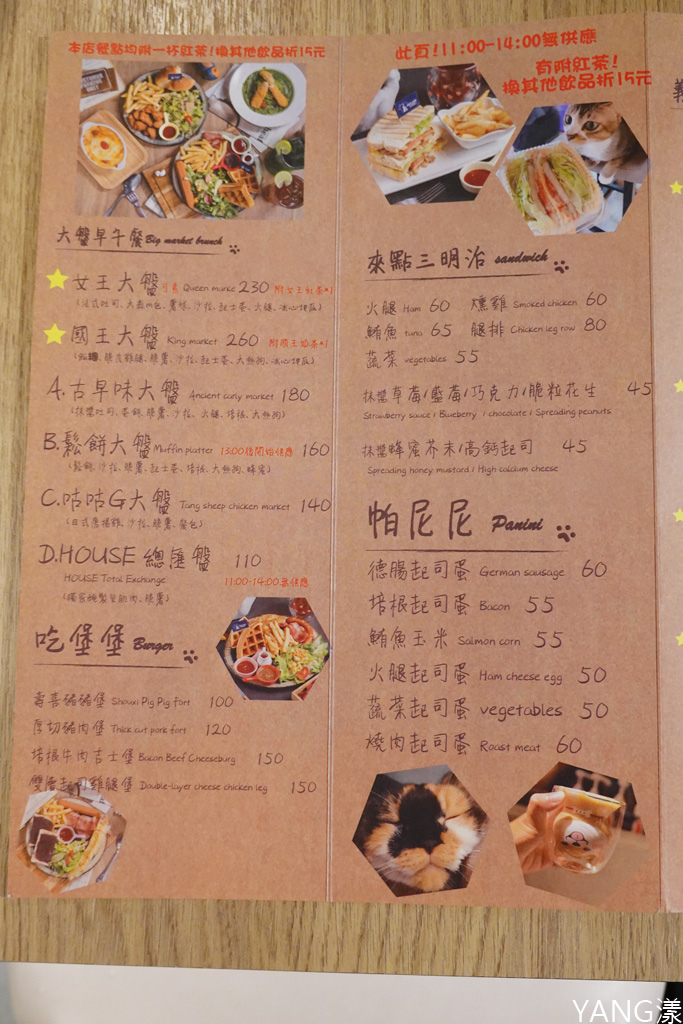 本店餐點均附一杯紅茶!換其他飲品折15元
大盤早午餐 Big market brunch
女王大盤 Queen marke 230 附女王紅茶*1
國王大盤 King market 260 附國王奶茶*1
A.古早味大盤 Ancient carly market 180
B.鬆餅大盤 Muffin platter 13:00後開始供應 160
(鬆餅、沙拉、脆薯、起士茶、培根、大熱狗、蜂蜜)
C.咕咕G大盤 Tang sheep chicken market 140
D.HOUSE 總匯盤 110
HOUSE Total Exchange 11:00-14:00無供應
吃堡堡 Burger
壽喜豬豬堡 Shouxi Pig Pig fort 100
厚切豬肉堡 Thick cut pork fort 120
培根牛肉吉士堡 Bacon Beef Cheeseburg 150
雙層起司雞腿堡 Double-layer cheese chicken leg 150
此頁!11:00-14:00無供應
有附紅茶!
換其他飲品折15元
來點三明治 sandwich
火腿 Ham 60 燻雞 Smoked chicken 60
鮪魚 tuna 65 腿排 Chicken leg row 80
蔬菜 vegetables 55
抹醬草莓/藍莓/巧克力/脆粒花生 45
Strawberry sauce / Blueberry / chocolate / Spreading peanuts
抹醬蜂蜜芥末/高鈣起司 45
Spreading honey mustard / High calcium cheese
帕尼尼 Panini
德腸起司蛋 German sausage 60
培根起司蛋 Bacon 55
鮪魚玉米 Salmon corn 55
火腿起司蛋 Ham cheese egg 50
蔬菜起司蛋 vegetables 50
燒肉起司蛋 Roast meat 60
YANG漾